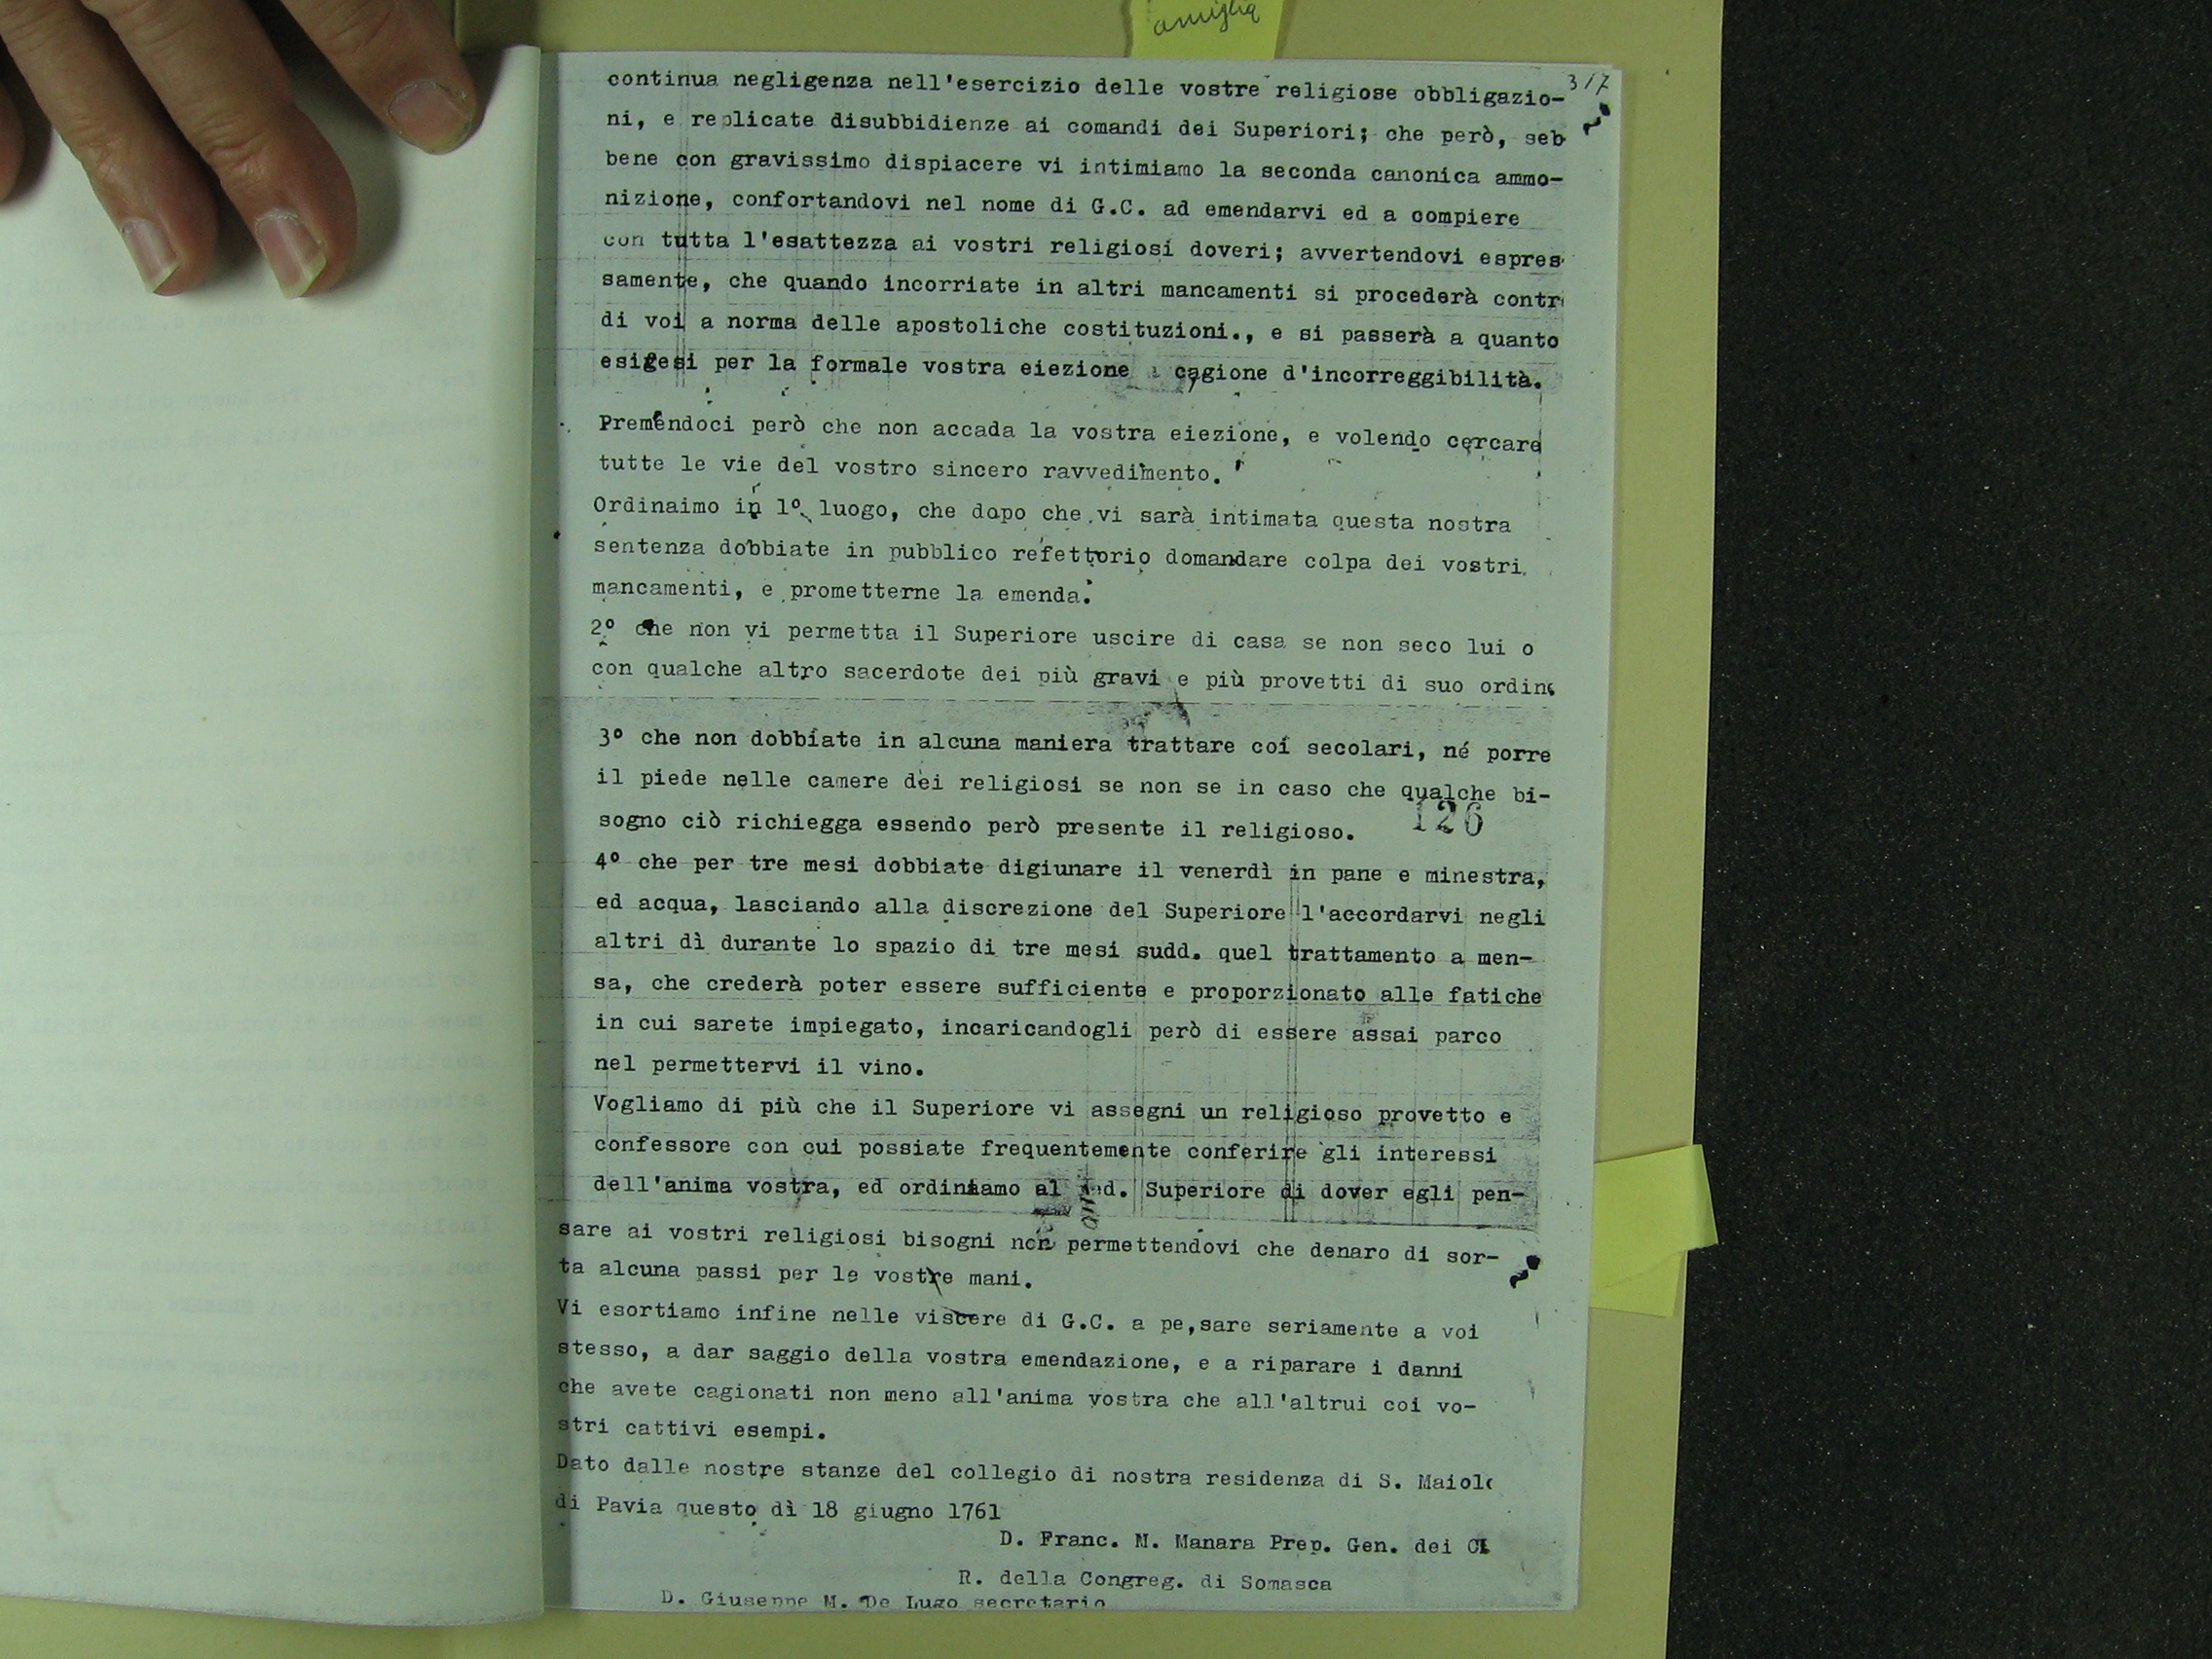 amiglia
317
continua negligenza nell'esercizio delle vostre religiose obbligazio-
ni, e replicate disubbidienze ai comandi dei Superiori; che però, seb
bene con gravissimo dispiacere vi intimiamo la seconda canonica ammo-
nizione, confortandovi nel nome di G.C. ad emendarvi ed a compiere
con tutta l'esattezza ai vostri religiosi doveri; avvertendovi espres
samente, che quando incorriate in altri mancamenti si procederà contr
di voi a norma delle apostoliche costituzioni., e si passerà a quanto
esigesi per la formale vostra eiezione a cagione d'incorreggibilità.
Premendoci però che non accada la vostra eiezione, e volendo cercare
tutte le vie del vostro sincero ravvedimento.
Ordinaimo in 1º luogo, che dopo che vi sarà intimata questa nostra
sentenza dobbiate in pubblico refettorio domandare colpa dei vostri
mancamenti, e prometterne la emenda.
2º che non vi permetta il Superiore uscire di casa se non seco lui o
con qualche altro sacerdote dei più gravi e più provetti di suo ordine
3º che non dobbiate in alcuna maniera trattare coi secolari, né porre
il piede nelle camere dei religiosi se non se in caso che qualche bi-
sogno ciò richiegga essendo però presente il religioso.
126
4º che per tre mesi dobbiate digiunare il venerdì in pane e minestra,
ed acqua, lasciando alla discrezione del Superiore l'accordarvi negli
altri dì durante lo spazio di tre mesi sudd. quel trattamento a men-
sa, che crederà poter essere sufficiente e proporzionato alle fatiche
in cui sarete impiegato, incaricandogli però di essere assai parco
nel permettervi il vino.
Vogliamo di più che il Superiore vi assegni un religioso provetto e
confessore con cui possiate frequentemente conferire gli interessi
dell'anima vostra, ed ordiniamo al Superiore di dover egli pen-
sare ai vostri religiosi bisogni non permettendovi che denaro di sor-
ta alcuna passi per le vostre mani.
Vi esortiamo infine nelle viscere di G.C. a pe,sare seriamente a voi
stesso, a dar saggio della vostra emendazione, e a riparare i danni
che avete cagionati non meno all'anima vostra che all'altrui coi vo-
stri cattivi esempi.
Dato dalle nostre stanze del collegio di nostra residenza di S. Maiolo
di Pavia questo dì 18 giugno 1761
D. Franc. M. Manara Prep. Gen. dei
R. della Congreg. di Somasca
D. Giuseppe M. De Lugo secretario